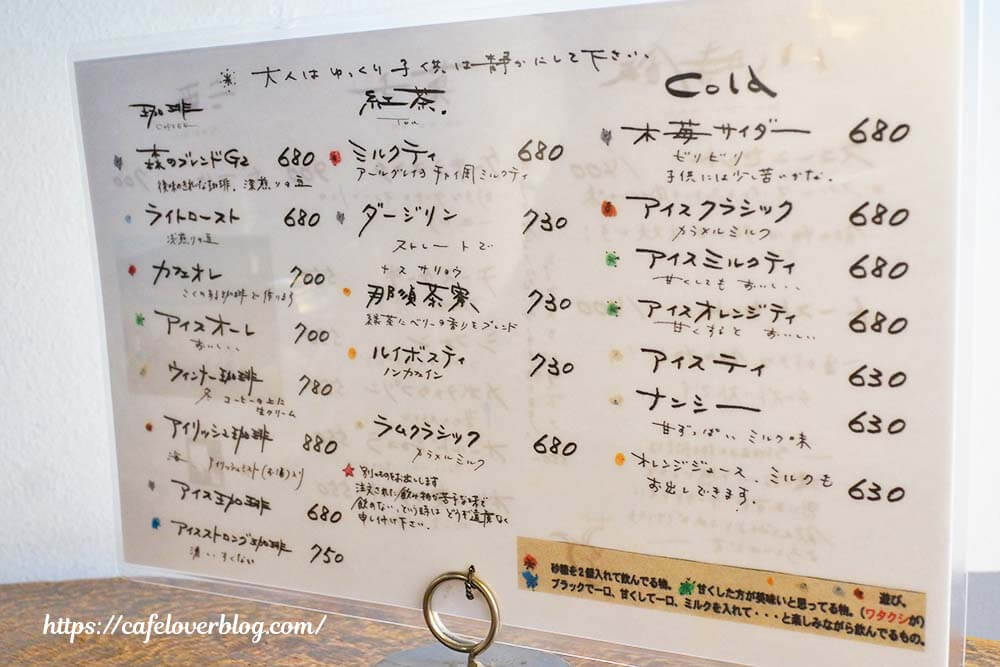 大人はゆっくり子供は静かにして下さい。
珈琲
COFFEE
森のブレンドG2 680
後味のきれいな珈琲、深煎りの豆
ライトロースト 680
浅煎りの豆
カフェオレ 700
こくのある珈琲で作ります
アイスオーレ 700
おいしい、、
ウィンナー珈琲 780
冬 コーヒーの上に
生クリーム
アイリッシュ珈琲 880
アイス珈琲 680
アイスストロング珈琲 750
濃い、すくない
紅茶。
Tea
ミルクティ 680
アールグレイかチャイ用ミルクティ
ダージリン 730
ストレートで
ナス サリョウ
那須茶寮 730
緑茶にベリーの香りをブレンド
ルイボスティ 730
ノンカフェイン
ラムクラシック 680
カラメルミルク
別ものお出しします
注文された飲み物が苦手な味で
飲めない、という時は どうぞ遠慮なく
申し付け下さい。
Cold
木苺サイダー 680
ビリビリ
子供には少し苦いかな。
アイスクラシック 680
カラメルミルク
アイスミルクティ 680
甘くしても おいしい、、
アイスオレンジティ 680
甘くすると おいしい
アイスティ 630
ナンシー 630
甘ずっぱい ミルク味
オレンジジュース、ミルクも 630
お出しできます。
砂糖を2個入れて飲んでる物。 甘くした方が美味いと思ってる物。(ワタクシが) 遊び、
ブラックで一口、甘くして一口、ミルクを入れて・・・と楽しみながら飲んでるもの。
https://cafeloverblog.com/